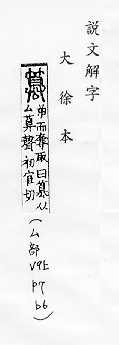 說文解字
大徐本
篡
屰而奪取曰篡从
厶算聲初官切
(厶部 V9上 p7 b6)